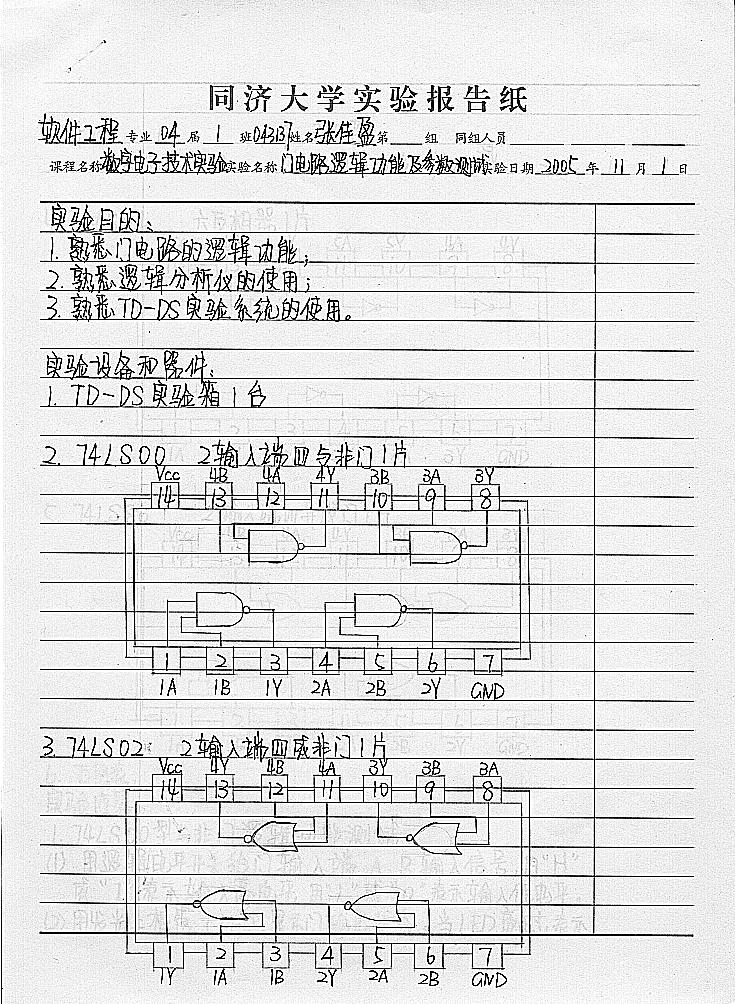 同济大学实验报告纸
软件工程 专业 04 届 1 班 043137 姓名 张佳盈 第 组 同组人员
课程名称 数字电子技术实验 实验名称 门电路逻辑功能及参数测试 实验日期 2005 年 11 月 1 日
实验目的：
1. 熟悉门电路的逻辑功能；
2. 熟悉逻辑分析仪的使用；
3. 熟悉TD-DS实验系统的使用。
实验设备和器件：
1. TD-DS实验箱1台
2. 74LS00 2输入端四与非门1片
Vcc 4B 4A 4Y 3B 3A 3Y
14 13 12 11 10 9 8
1 2 3 4 5 6 7
1A 1B 1Y 2A 2B 2Y GND
3. 74LS02： 2输入端四或非门1片
Vcc 4Y 4B 4A 3Y 3B 3A
14 13 12 11 10 9 8
1 2 3 4 5 6 7
1Y 1A 1B 2Y 2A 2B GND